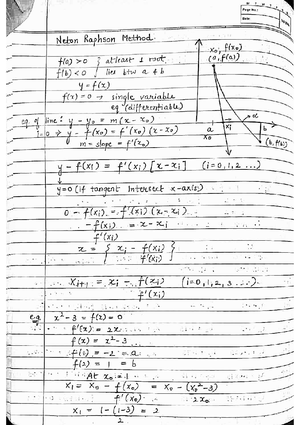 Page No.:
Date:
Neton Raphson Method
f(a) > 0 } atleast 1 root
f(b) < 0 } lies btw a & b
y = f(x)
f(x) = 0 → single variable
eq (differentiable)
x₀, f(x₀)
(a, f(a))
α
a
x₀
x₁
b
(b, f(b))
eq. of line: y - y₀ = m(x - x₀)
i=0 → y - f(x₀) = f'(x₀)(x - x₀)
m = slope = f'(x₀)
y - f(xi) = f'(xi) [x - xi] (i=0,1,2 ...)
y=0 (if tangent intersect x-axis)
0 - f(xi) = f'(xi) (x - xi)
-f(xi) = x - xi
f'(xi)
x = { xi - f(xi) }
f'(xi)
xi+1 = xi - f(xi) (i=0,1,2,3 ...)
f'(xi)
e.g x² - 3 = f(x) = 0
f'(x) = 2x
f(x) = x² - 3
f(1) = -2 = a
f(2) = 1 = b
At x₀ = 1
x₁ = x₀ - f(x₀) = x₀ - (x₀² - 3)
f'(x₀) 2x₀
x₁ = 1 - (1-3) = 2
2